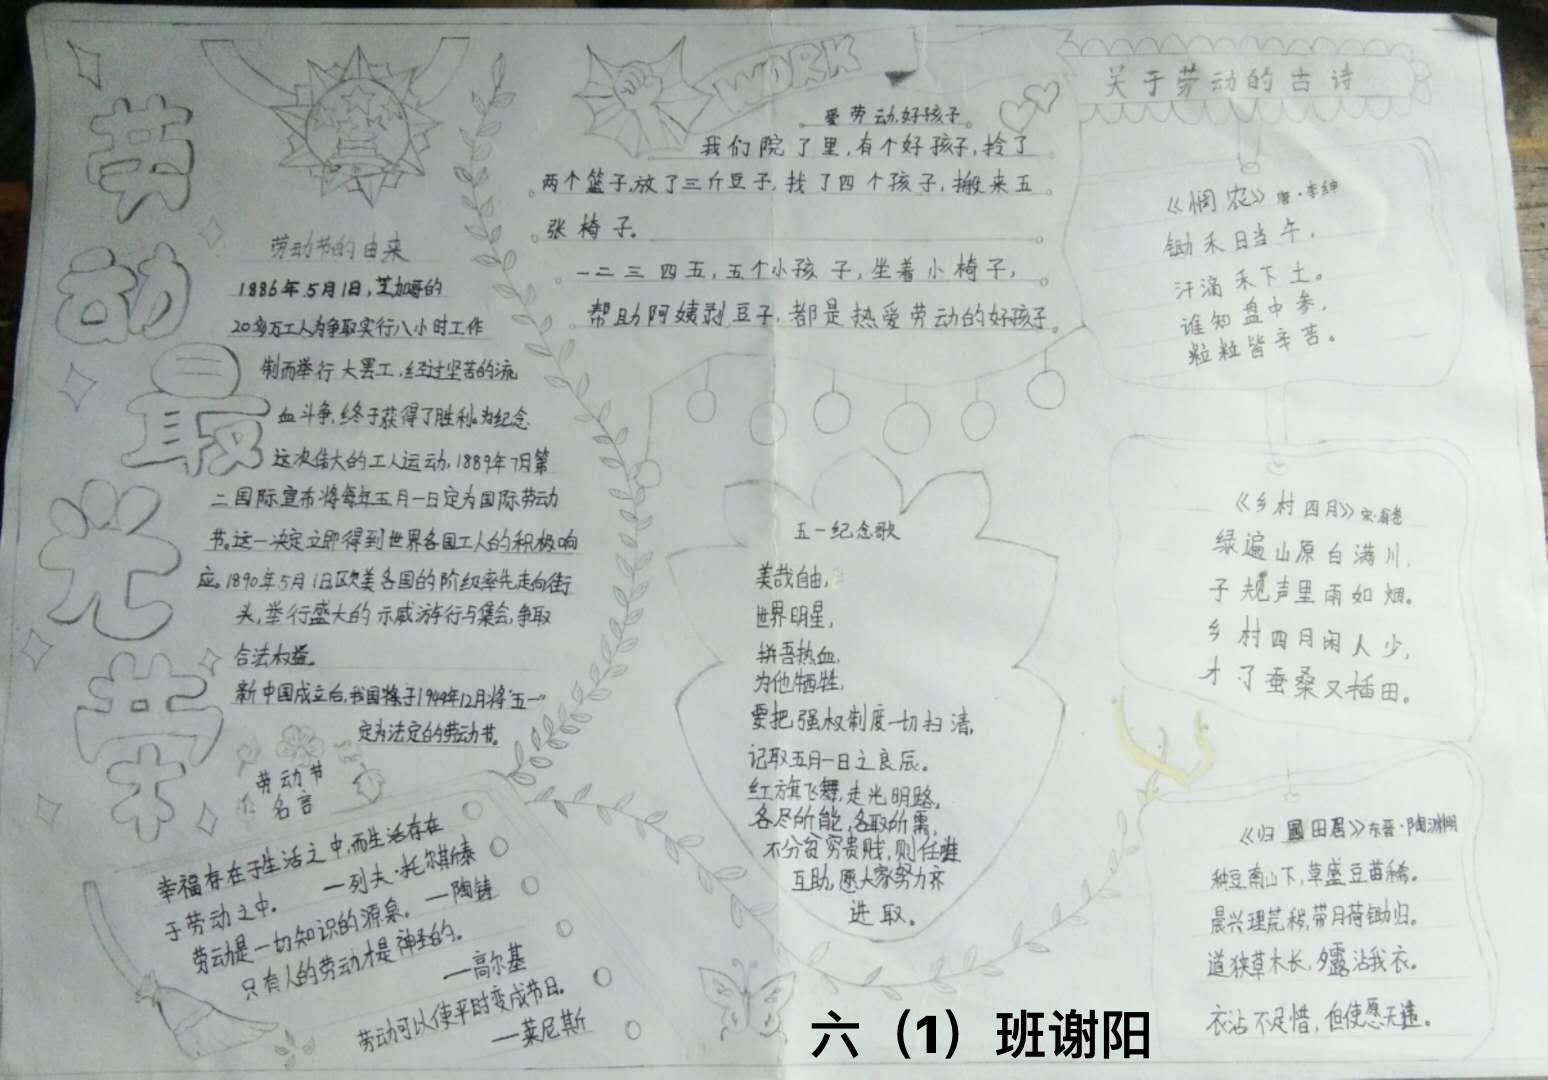 劳动最光荣
劳动节的由来
1886年5月1日,芝加哥的
20多万工人为争取实行八小时工作
制而举行大罢工,经过坚苦的流
血斗争,终于获得了胜利。为纪念
这次伟大的工人运动,1889年7月第
二国际宣布将每年五月一日定为国际劳动
节。这一决定立即得到世界各国工人的积极响
应。1890年5月1日欧美各国的阶级率先走向街
头,举行盛大的示威游行与集会,争取
合法权益。
新中国成立后,我国于1949年12月将“五一”
定为法定的劳动节。
劳动节
名言
幸福存在于生活之中,而生活存在
于劳动之中。 —列夫·托尔斯泰
劳动是一切知识的源泉。 —陶铸
只有人的劳动才是神圣的。
—高尔基
劳动可以使平时变成节日。
—莱尼斯
WORK
爱劳动好孩子
我们院了里,有个好孩子,拎了
两个篮子,放了三斤豆子,找了四个孩子,搬来五
张椅子。
一二三四五,五个小孩子,坐着小椅子,
帮助阿姨剥豆子,都是热爱劳动的好孩子。
五一纪念歌
美哉自由,
世界明星,
拼吾热血,
为他牺牲,
要把强权制度一切扫清,
记取五月一日之良辰。
红旗飞舞,走光明路,
各尽所能,各取所需,
不分贫穷贵贱,则任唯
互助,愿大家努力齐
进取。
关于劳动的古诗
《悯农》唐·李绅
锄禾日当午,
汗滴禾下土。
谁知盘中参,
粒粒皆辛苦。
《乡村四月》宋·翁卷
绿遍山原白满川,
子规声里雨如烟。
乡村四月闲人少,
才了蚕桑又插田。
《归园田居》东晋·陶渊明
种豆南山下,草盛豆苗稀。
晨兴理荒秽,带月荷锄归。
道狭草木长,夕露沾我衣。
衣沾不足惜,但使愿无违。
六（1）班谢阳